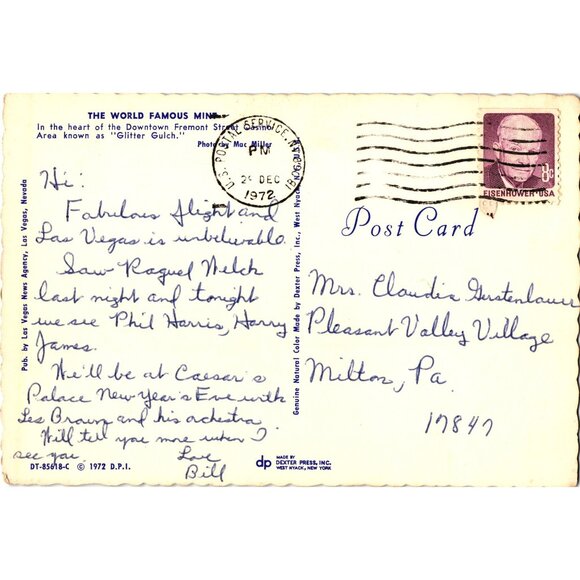 THE WORLD FAMOUS MINT
In the heart of the Downtown Fremont Street Casino
Area known as "Glitter Gulch."
Photo by Mac Miller
Hi:
Fabulous flight and
Las Vegas is unbelievable.
Saw Raquel Welch
last night and tonight
we see Phil Harris, Harry
James.
We'll be at Caesar's
Palace New Year's Eve with
Les Brown and his orchestra
Will tell you more when I
see you.
Love
Bill
DT-85618-C © 1972 D.P.I.
Pub. by Las Vegas News Agency, Las Vegas, Nevada
Genuine Natural Color Made by Dexter Press, Inc., West Nyack, New York
dp MADE BY
DEXTER PRESS, INC.
WEST NYACK, NEW YORK
U.S. POSTAL SERVICE, NV
PM
DEC
1972
8c
EISENHOWER·USA
Post Card
Mrs. Claudia Gerstenlauer
Pleasant Valley Village
Milton, Pa.
17847